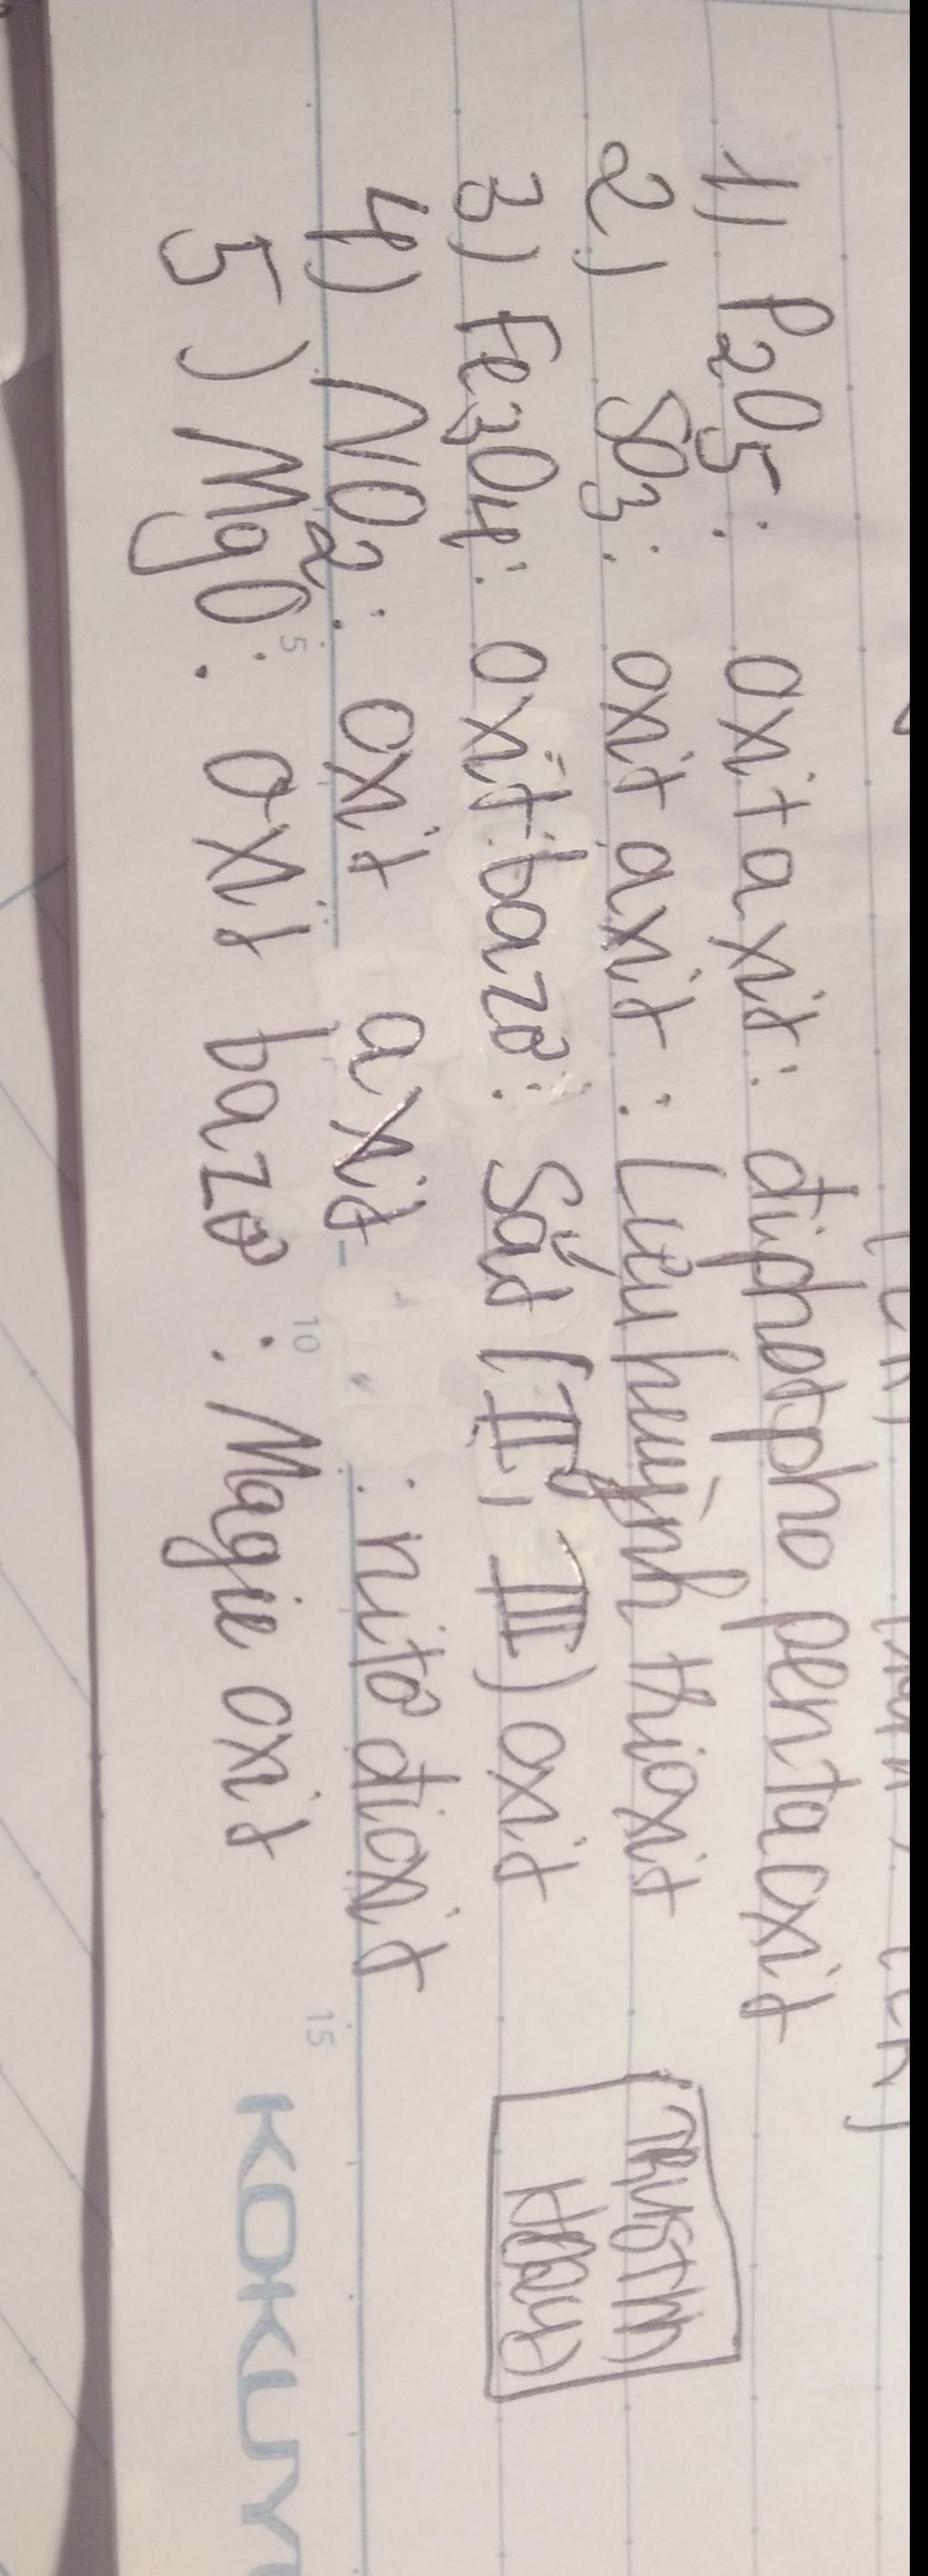 1) P2O5: oxit axit: điphotpho pentaoxit
2) SO3: oxit axit: Lưu huỳnh trioxit
3) Fe3O4: oxit bazơ: Sắt (II, III) oxit
4) NO2: oxit axit : nitơ đioxit
5) MgO: oxit bazơ : Magie oxit
5 10 15
KOKUY